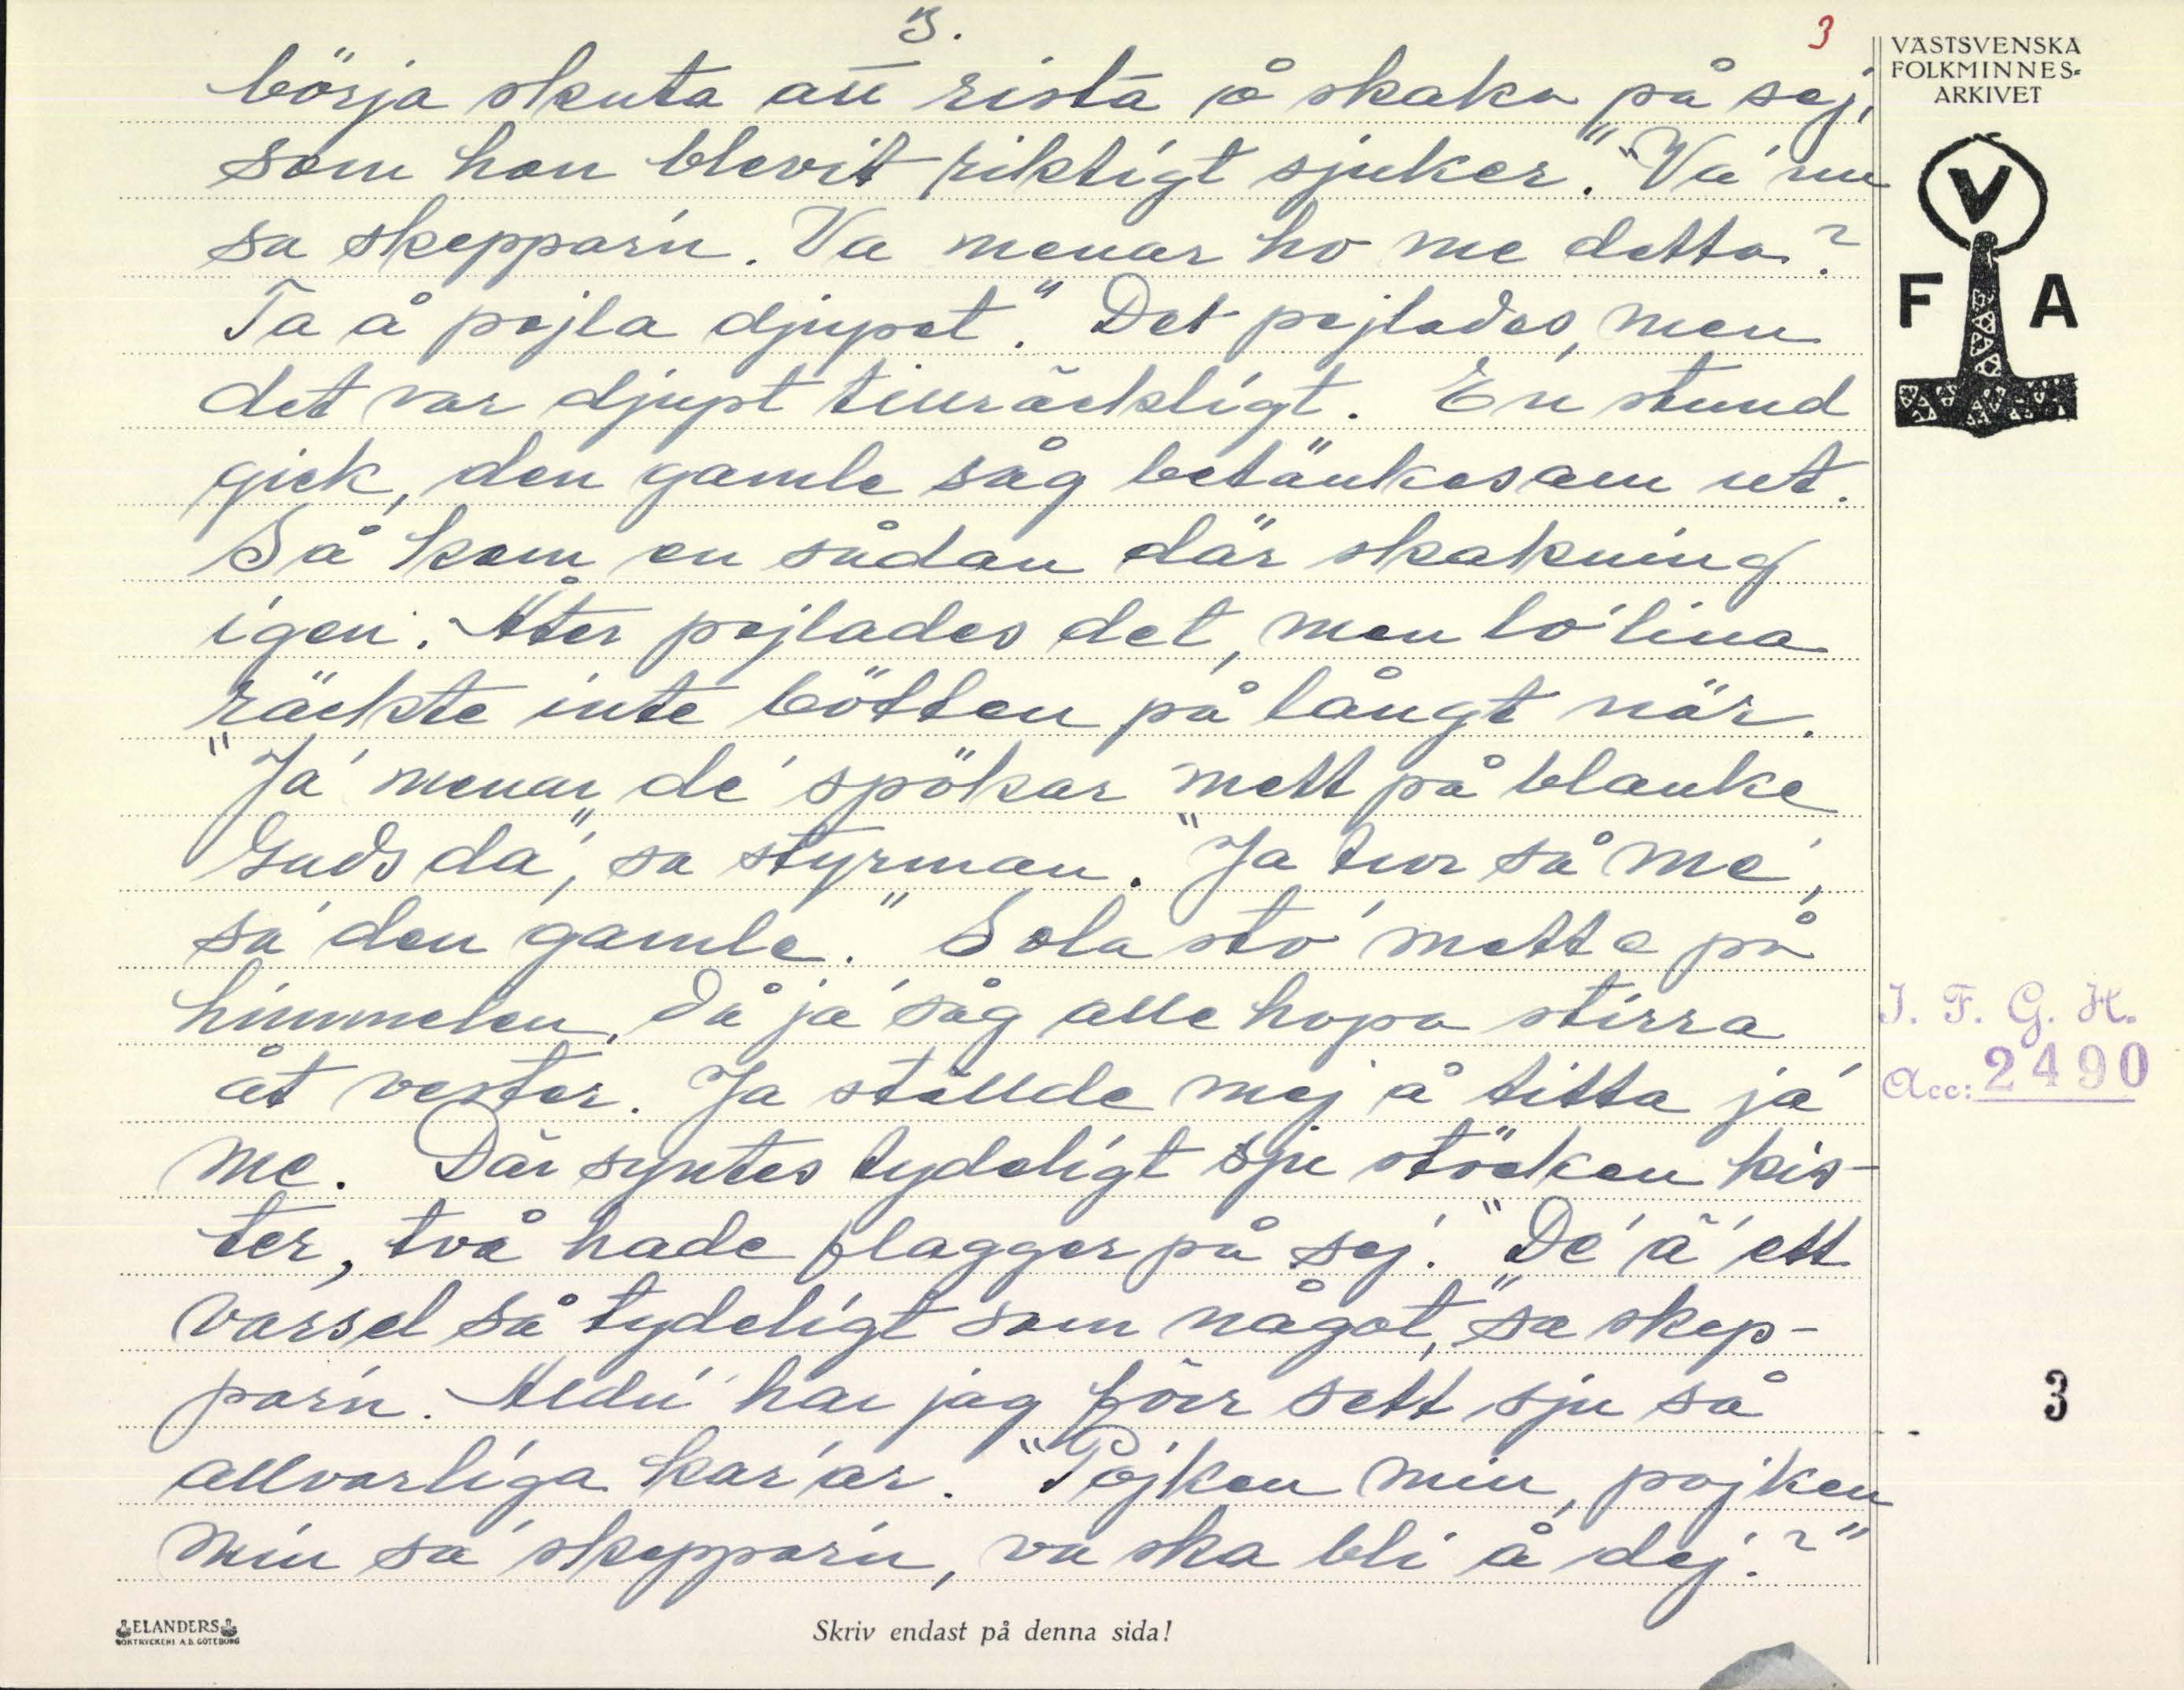 3.
3
VÄSTSVENSKA
FOLKMINNES-
ARKIVET
V
F A
börja skuta att rista å skaka på sej,
som hon blevit riktigt sjuker." "Va' nu
sa skepparn. Va menar ho me detta?
Ta å pejla djupet." Det pejlades, men
det var djupt tillräckligt. En stund
gick, den gamle såg betänkesam ut.
Så kom en sådan där skakning
igen. Åter pejlades det, men lo'lina
räckte inte bötten på långt när.
"Ja' menar de' spökar mett på blanke
Guds da'", sa styrman. "Ja tror så me',
sa' den gamle." Sola sto' mette på
himmelen, då ja' såg alle hopa stirra
åt vester. Ja ställde mej å titta ja'
me. Där syntes tydeligt sju stöcken kis-
ter, två hade flagger på sej. "De' ä' ett
varsel så tydeligt som något," sa skep-
parn. Aldri' har jag förr sett sju så
allvarliga kar'ar. "Pojken min, pojken
min sa' skepparn, va ska bli å dej?"
I. F. G. H.
Acc: 2490
3
ELANDERS
BOKTRYCKERI A.B. GÖTEBORG
Skriv endast på denna sida!